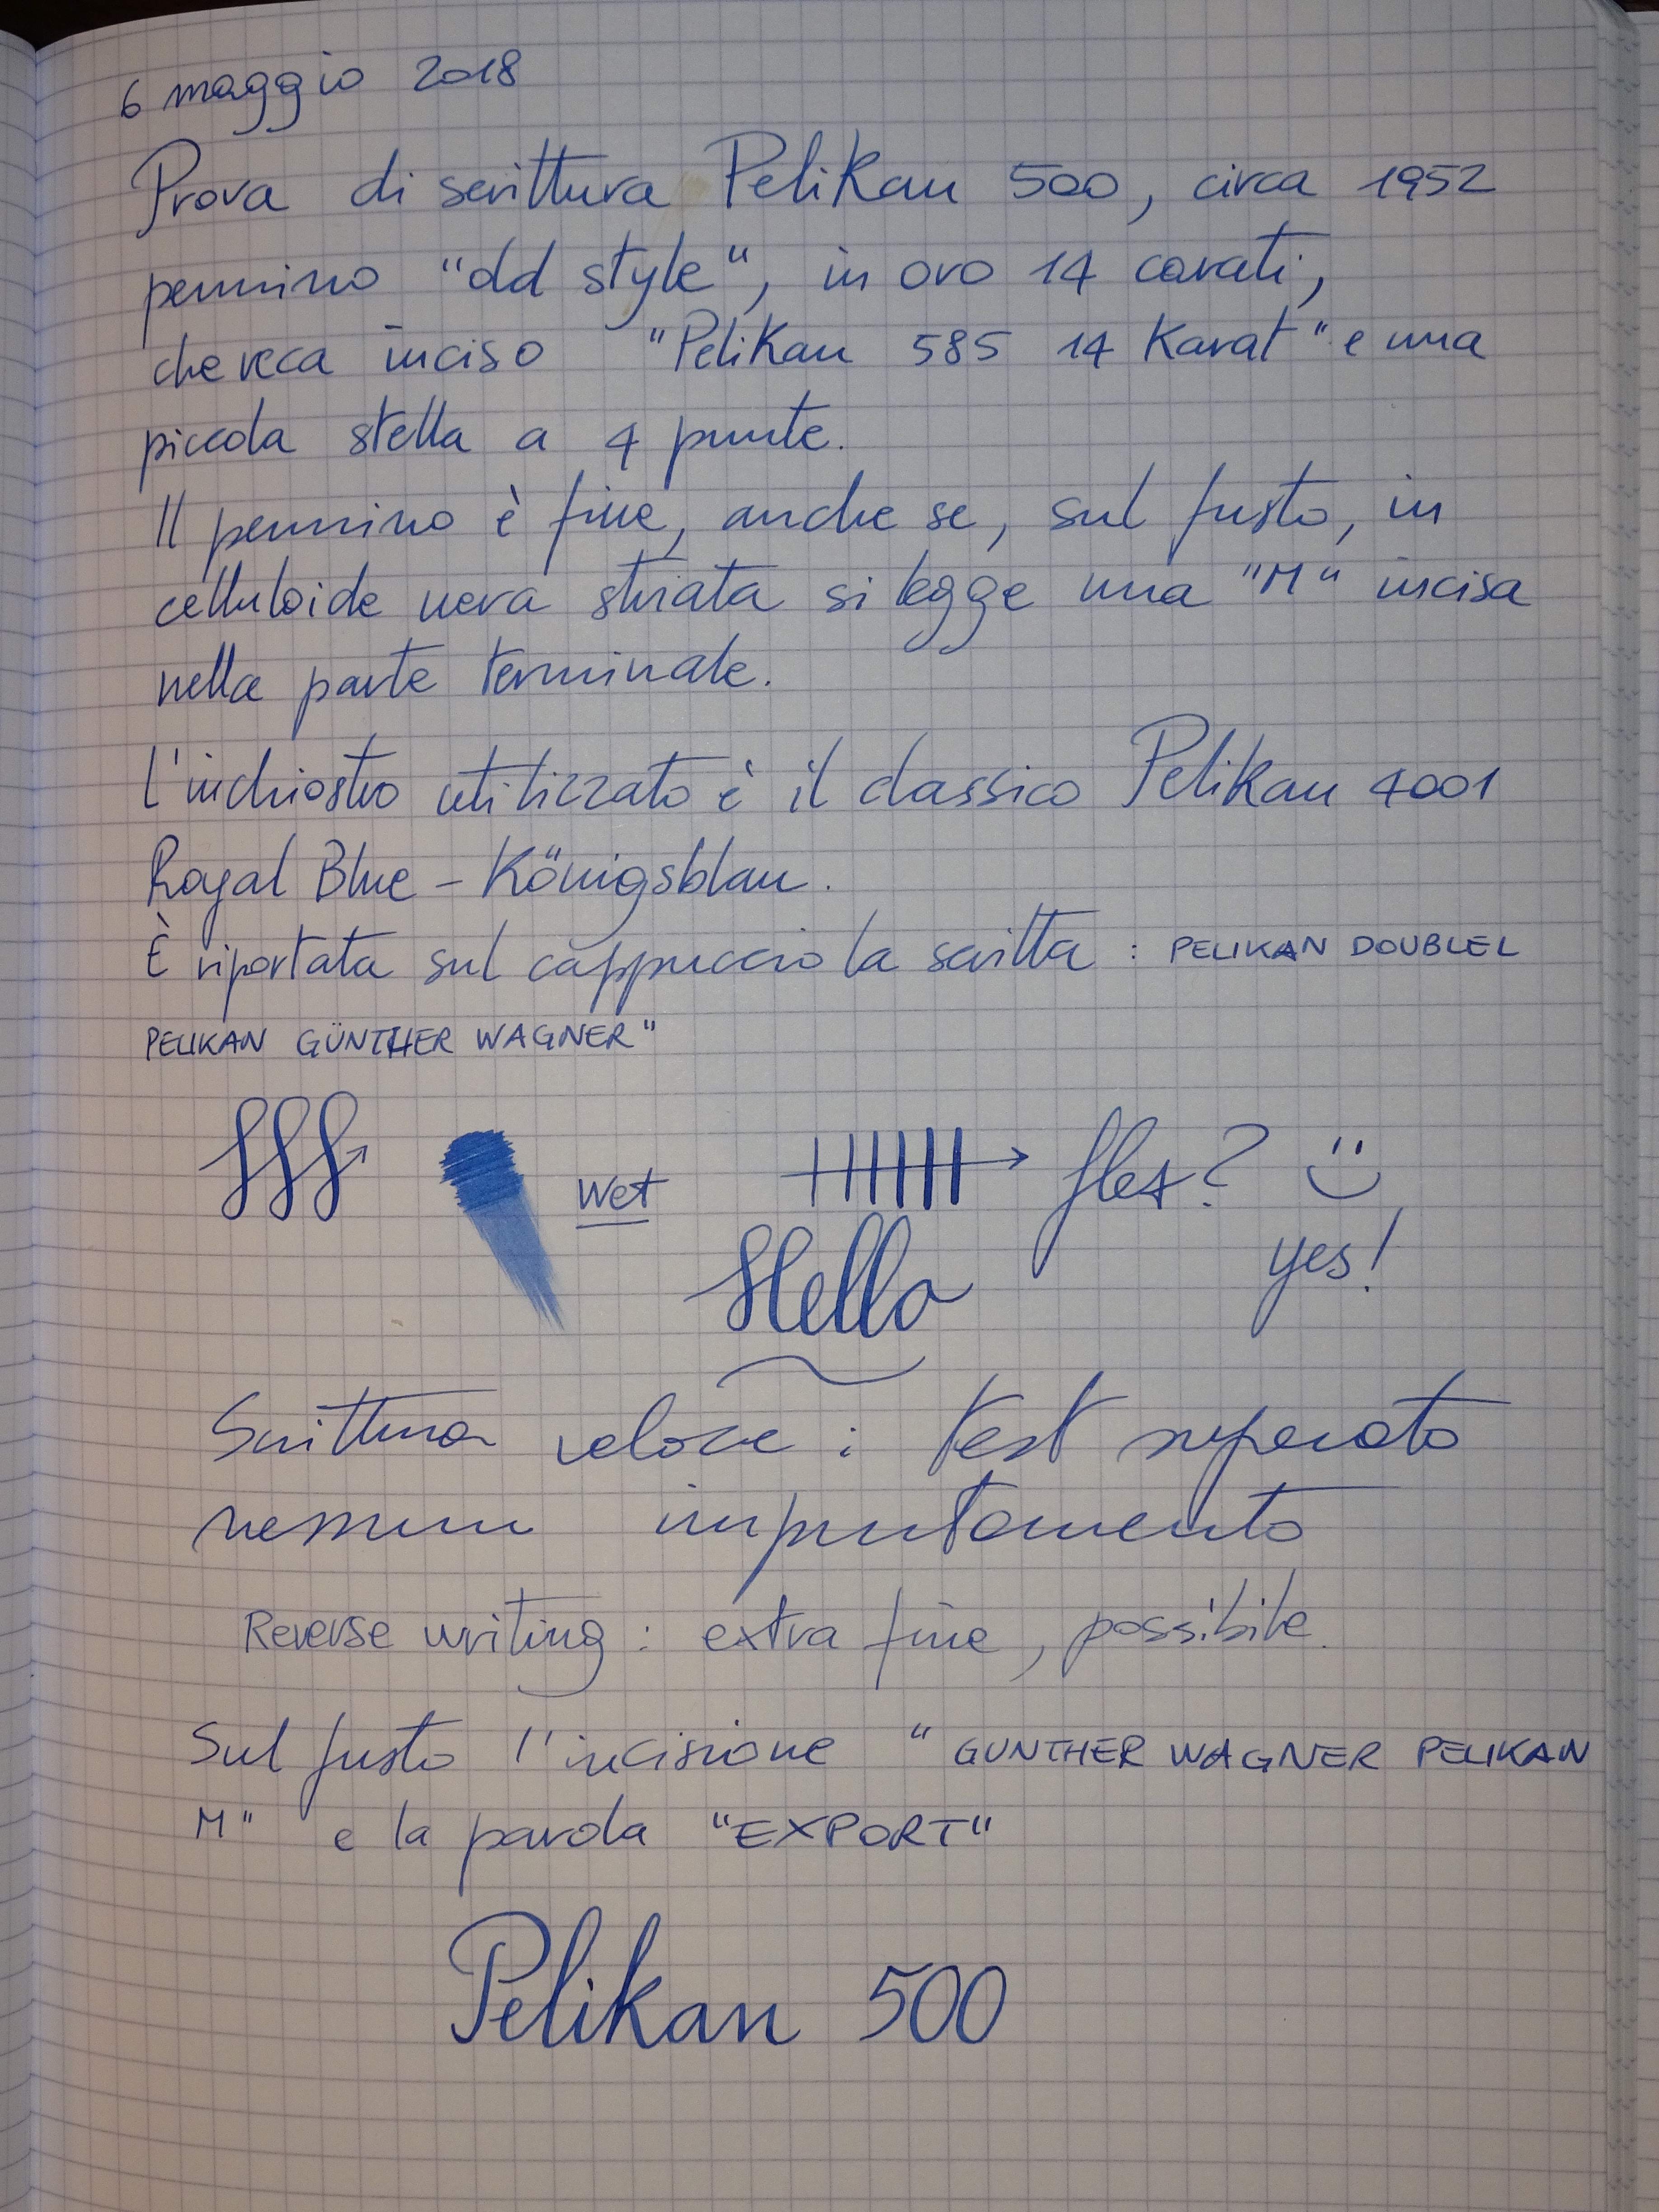 6 maggio 2018
Prova di scrittura Pelikan 500, circa 1952
pennino "old style", in oro 14 carati,
che reca inciso "Pelikan 585 14 Karat" e una
piccola stella a 4 punte.
Il pennino è fine, anche se, sul fusto, in
celluloide nera striata si legge una "M" incisa
nella parte terminale.
L'inchiostro utilizzato è il classico Pelikan 4001
Royal Blue - Königsblau.
È riportata sul cappuccio la scritta : PELIKAN DOUBLEL
PELIKAN GÜNTHER WAGNER"
wet
flex? yes!
Hello
Scrittura veloce : test superato
nessun impuntamento
Reverse writing : extra fine, possibile.
Sul fusto l'incisione "GUNTHER WAGNER PELIKAN
M" e la parola "EXPORT"
Pelikan 500